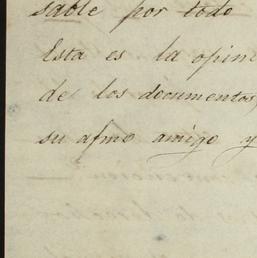 sable por todo
Esta es la opin
de los documentos,
su afmo amigo y